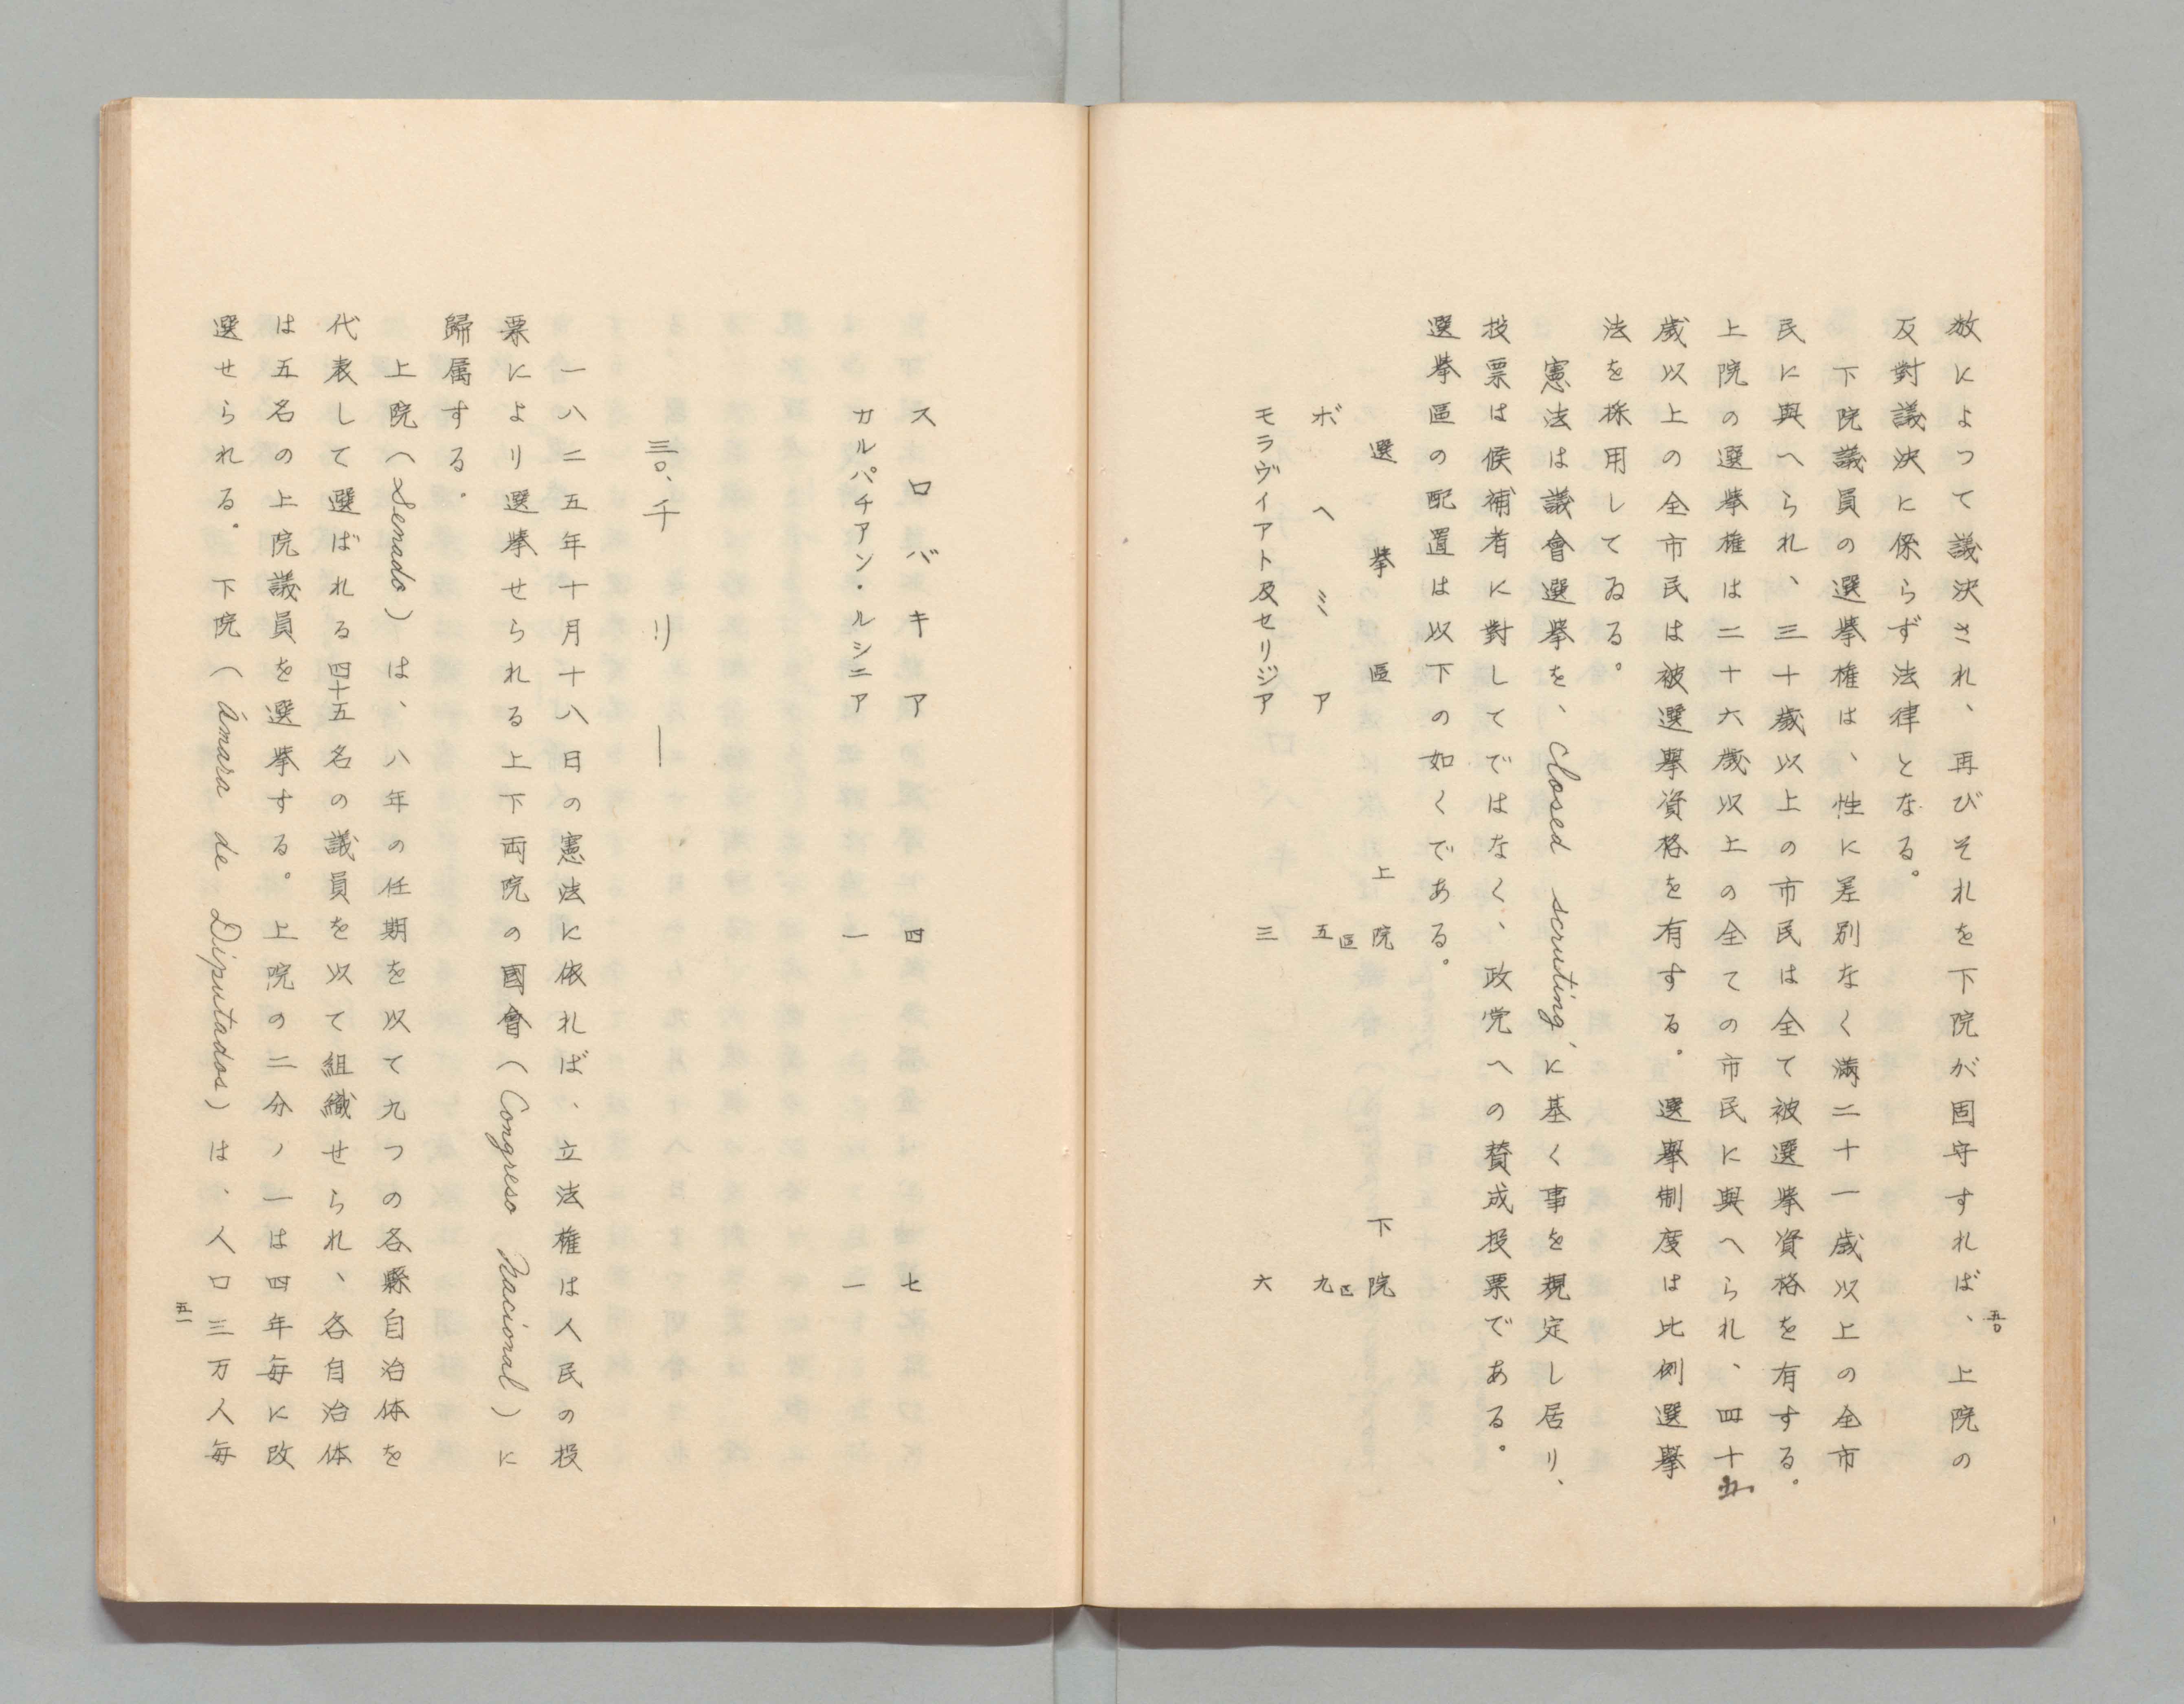 五〇
放によつて議決され、再びそれを下院が固守すれば、上院の
反對議決に係らず法律となる。
下院議員の選挙権は、性に差別なく満二十一歳以上の全市
民に與へられ、三十歳以上の市民は全て被選挙資格を有する。
上院の選挙権は二十六歳以上の全ての市民に與へられ、四十五
歳以上の全市民は被選擧資格を有する。選擧制度は比例選擧
法を採用してゐる。
憲法は議會選挙を、closed scruting、に基く事を規定し居り、
投票は候補者に對してではなく、政党への賛成投票である。
選挙區の配置は以下の如くである。
選挙區 上院 下院
ボヘミア 五区 九区
モラヴイアト及セリジア 三 六
スロバキア 四 七
カルパチアン・ルシニア 一 一
三〇、チリー
一八二五年十月十八日の憲法に依れば、立法権は人民の投
票により選挙せられる上下両院の國會(Congreso Nacional)に
歸属する。
上院(Senado)は、八年の任期を以て九つの各縣自治体を
代表して選ばれる四十五名の議員を以て組織せられ、各自治体
は五名の上院議員を選挙する。上院の二分ノ一は四年毎に改
選せられる。下院(Ámara de Diputados)は、人口三万人毎
五一